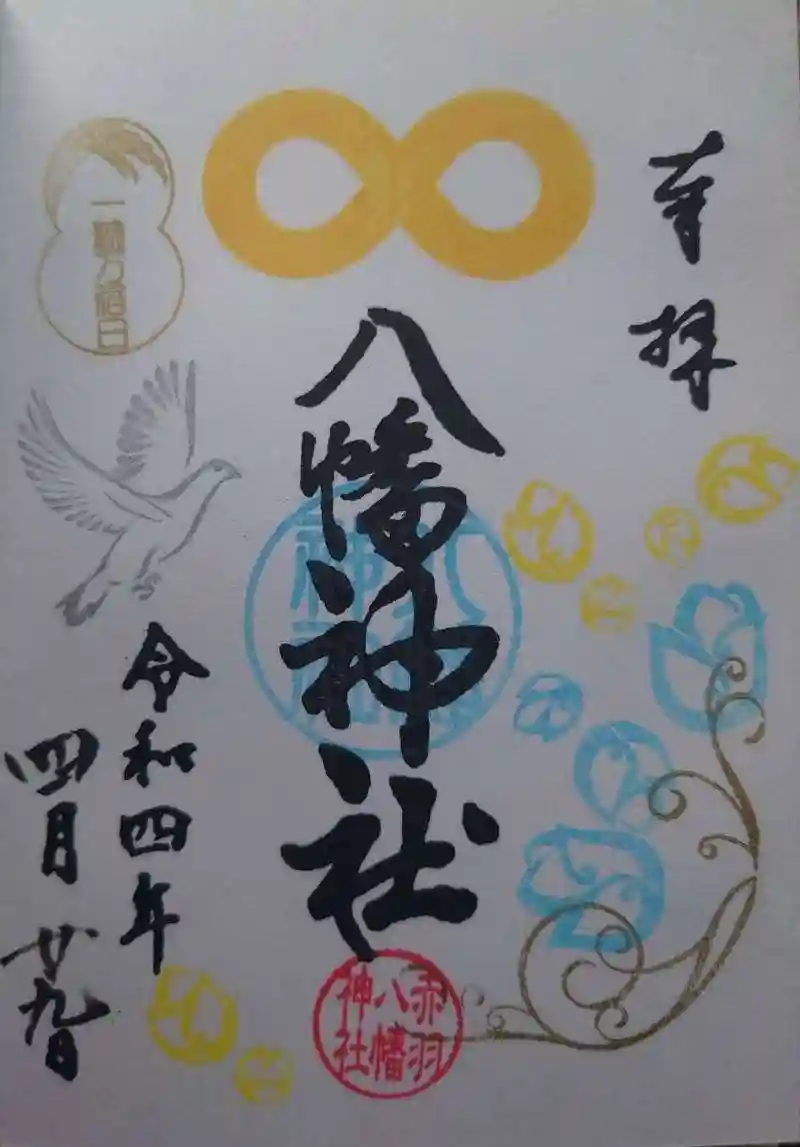 奉拝
八幡神社
八幡神社
赤羽八幡神社
一粒万倍日
令和四年
四月廿九日